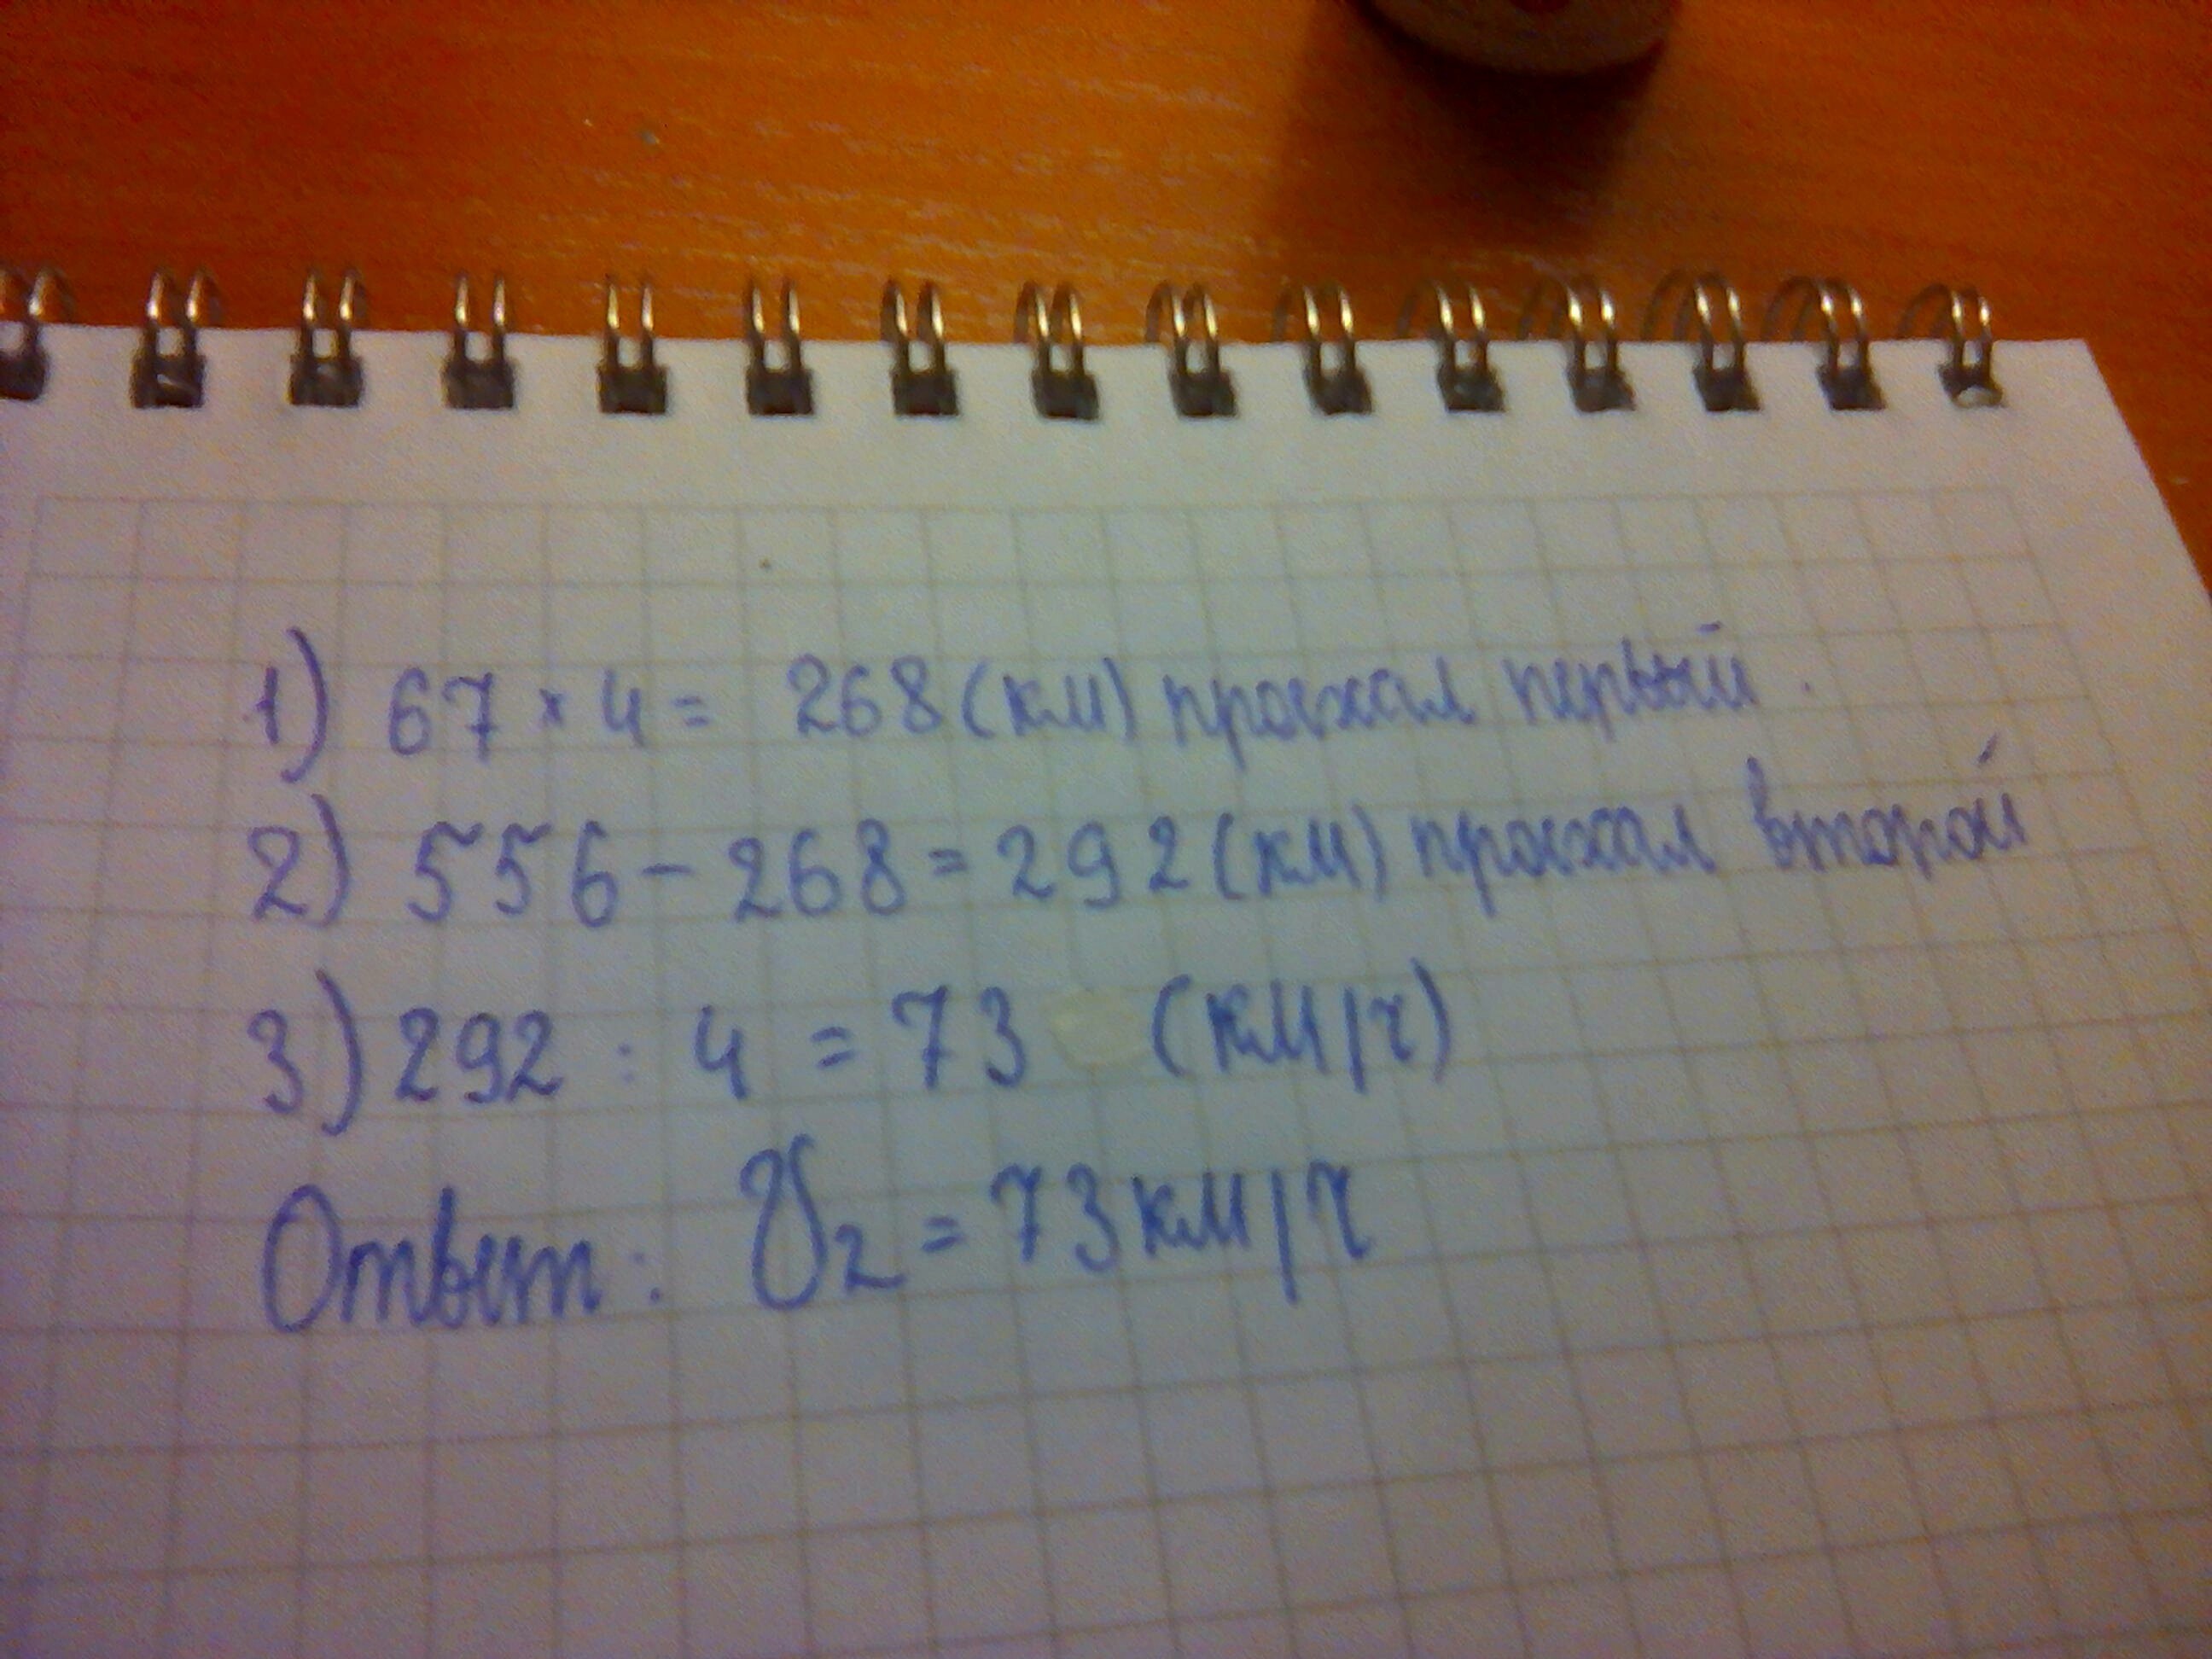 1) 67 × 4 = 268 (км) проехал первый.
2) 556 - 268 = 292 (км) проехал второй
3) 292 : 4 = 73 (км/ч)
Ответ: V₂ = 73 км/ч